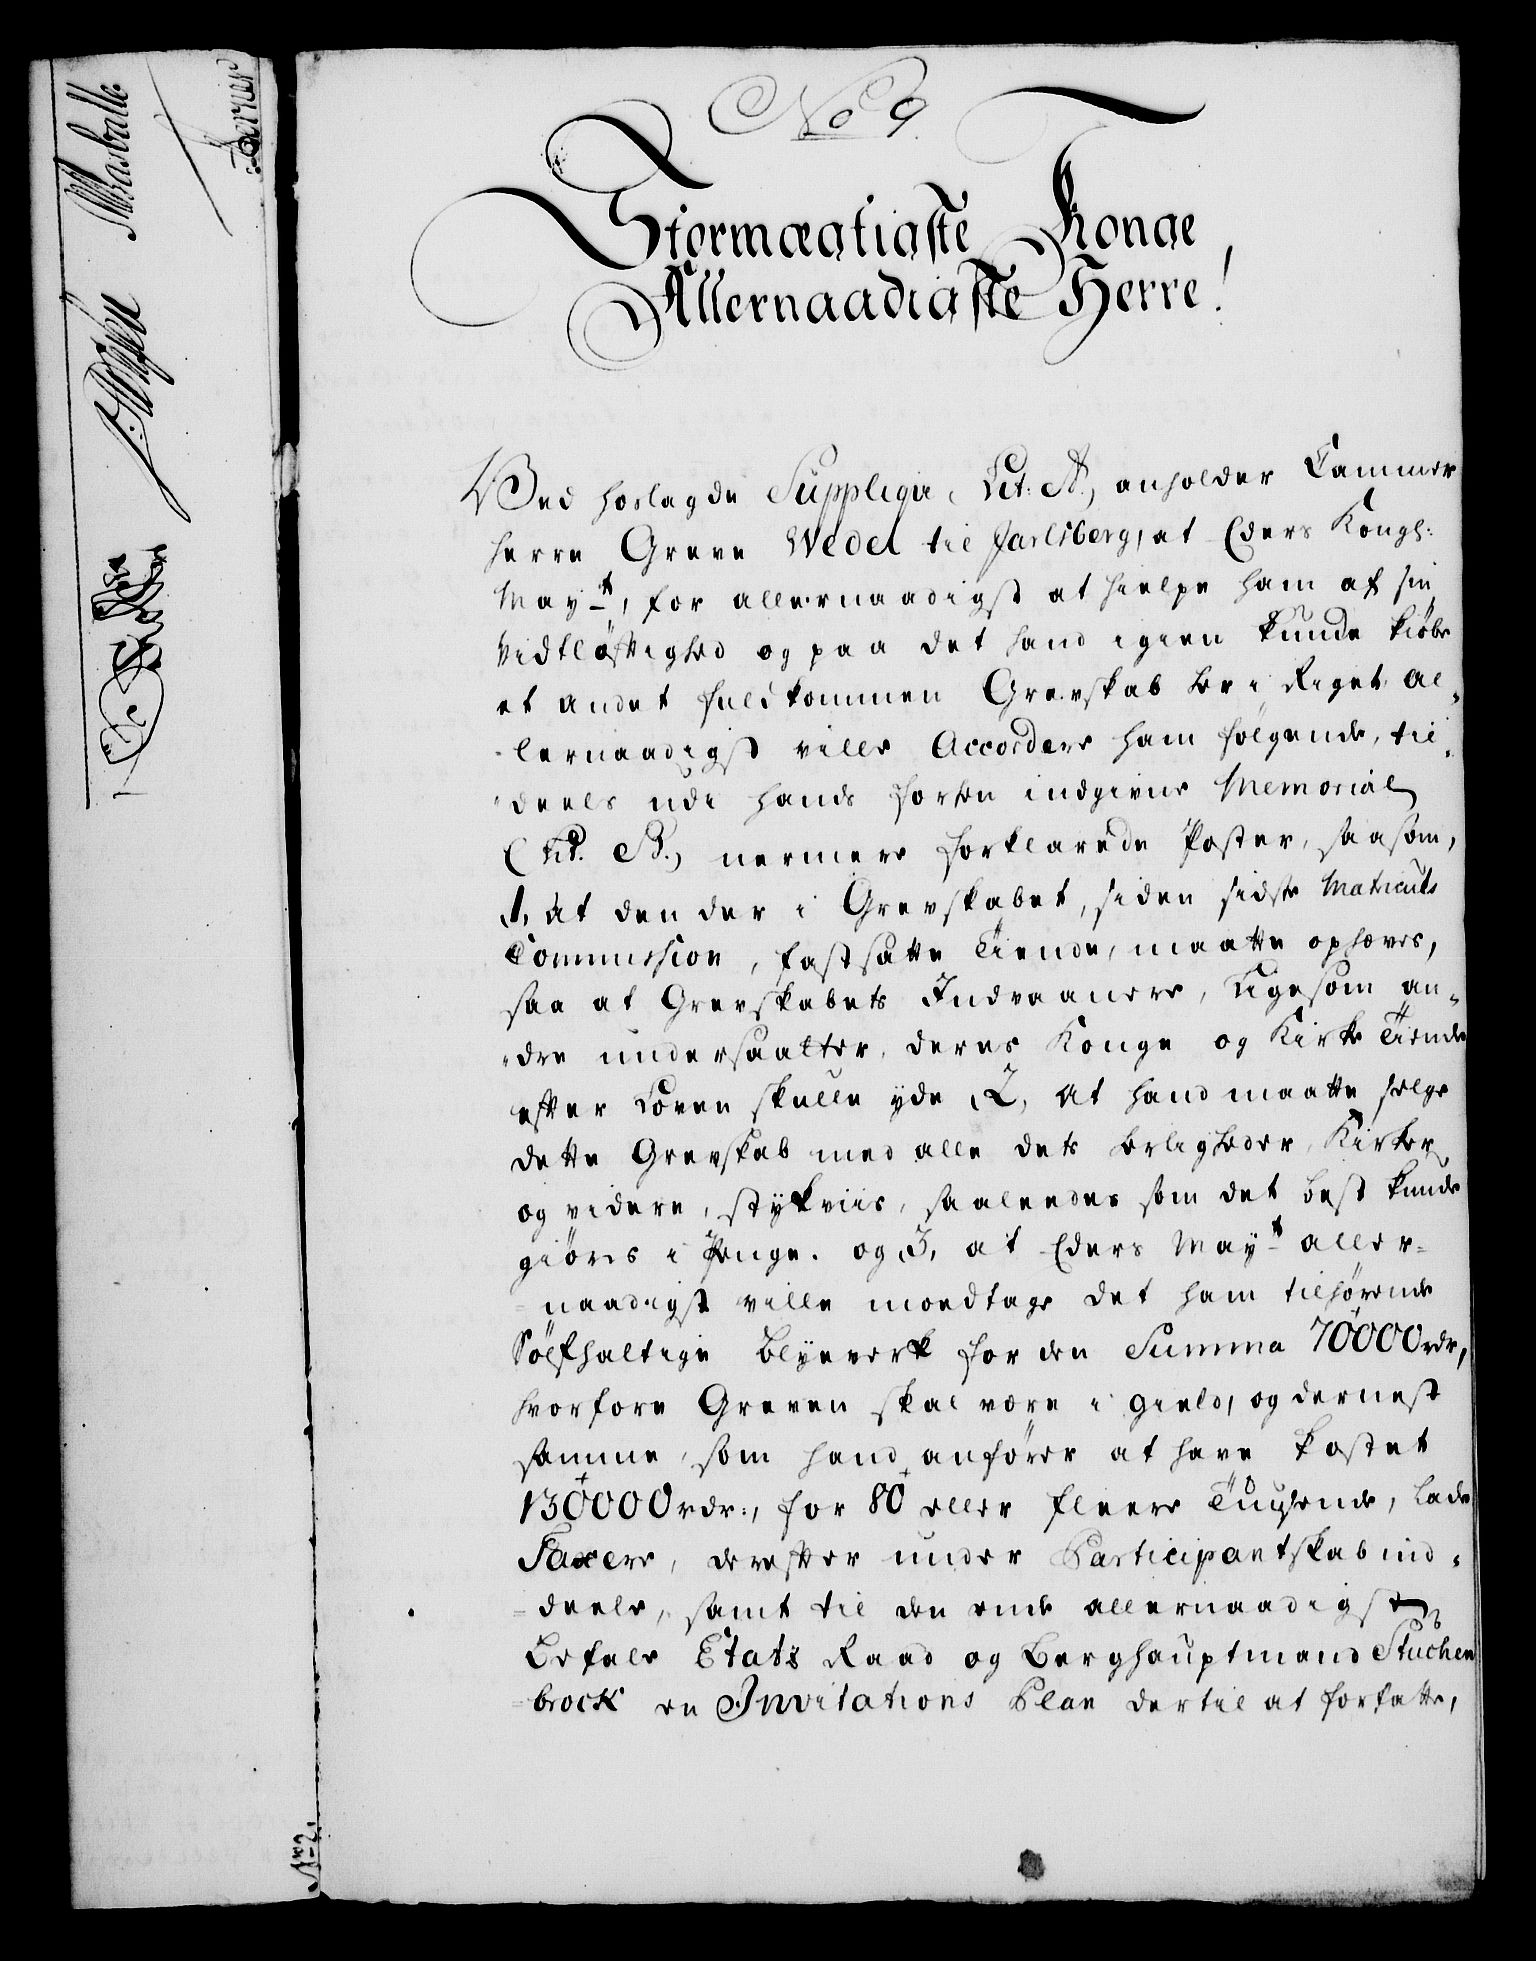 No 9.
Stormægtigste Konge,
Allernaadigste Herre!
Ved hoslagde Suppliqve, Lit: A, anholder Cammer
herre Greve Wedel til Jarlsberg, at Eders Kongl:
Mayt, for allernaadigst at hielpe ham af sin
Vidtløftighed og paa det hand igien kunde kiøbe
et andet fuldkommen Grevskab her i Riget al-
lernaadigst ville Accordere ham følgende, til
deels udi hands forhen indgivne Memorial
(Lit. B.) nermere forklarede Poster, saasom,
1, at den der i Grevskabet, siden sidste Matriculs
Commission, fastsatte Tiende, maatte ophæves,
saa at Grevskabets Indvaanere, ligesom an-
dre undersaatter, deres Konge og Kirke Tiende
efter Loven skulle yde, 2, At hand maatte selge
dette Grevskab med alle dets herligheder, Kirker
og videre, stykviis, saaledes som det best kunde
giøres i Penge. og 3, at Eders Mayt aller-
naadigst ville modtage det ham tilhørende
Sølfhaltige Blyeverk for den Summa 70000 rdr,
hvorfore Greven skal være i gield, og dernest
samme, som hand anfører at have kostet
130000 rdr:, for 80 eller fleere Tuusende, lade
Taxere, derefter under Participantskab ind-
deele, samt til den ende allernaadigst
Befale Etats Raad og Berghauptmand Stuchen
brock en Invitations Plan dertil at forfatte,
No 2.